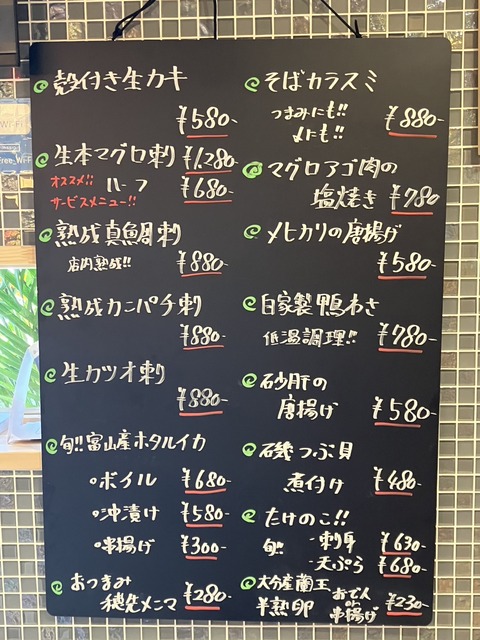 殻付き生カキ
¥580-
生本マグロ刺 ¥1,280-
オススメ!! ハーフ ¥680-
サービスメニュー!!
熟成真鯛刺
店内熟成!! ¥880-
熟成カンパチ刺
¥880-
生カツオ刺
¥880-
旬!!富山産ホタルイカ
・ボイル ¥680-
・沖漬け ¥580-
・串揚げ ¥300-
おつまみ
穂先メンマ ¥280-
そばカラスミ
つまみにも!! ¥880-
〆にも!!
マグロアゴ肉の
塩焼き ¥780
メヒカリの唐揚げ
¥580-
自家製鴨わさ
低温調理!! ¥780-
砂肝の
唐揚げ ¥580-
磯つぶ貝
煮付け ¥480-
たけのこ!!
旬!! ・刺身 ¥630-
・天ぷら ¥680-
大分産蘭王 おでん
半熟卵 or 串揚げ ¥230-
Free Wi-Fi